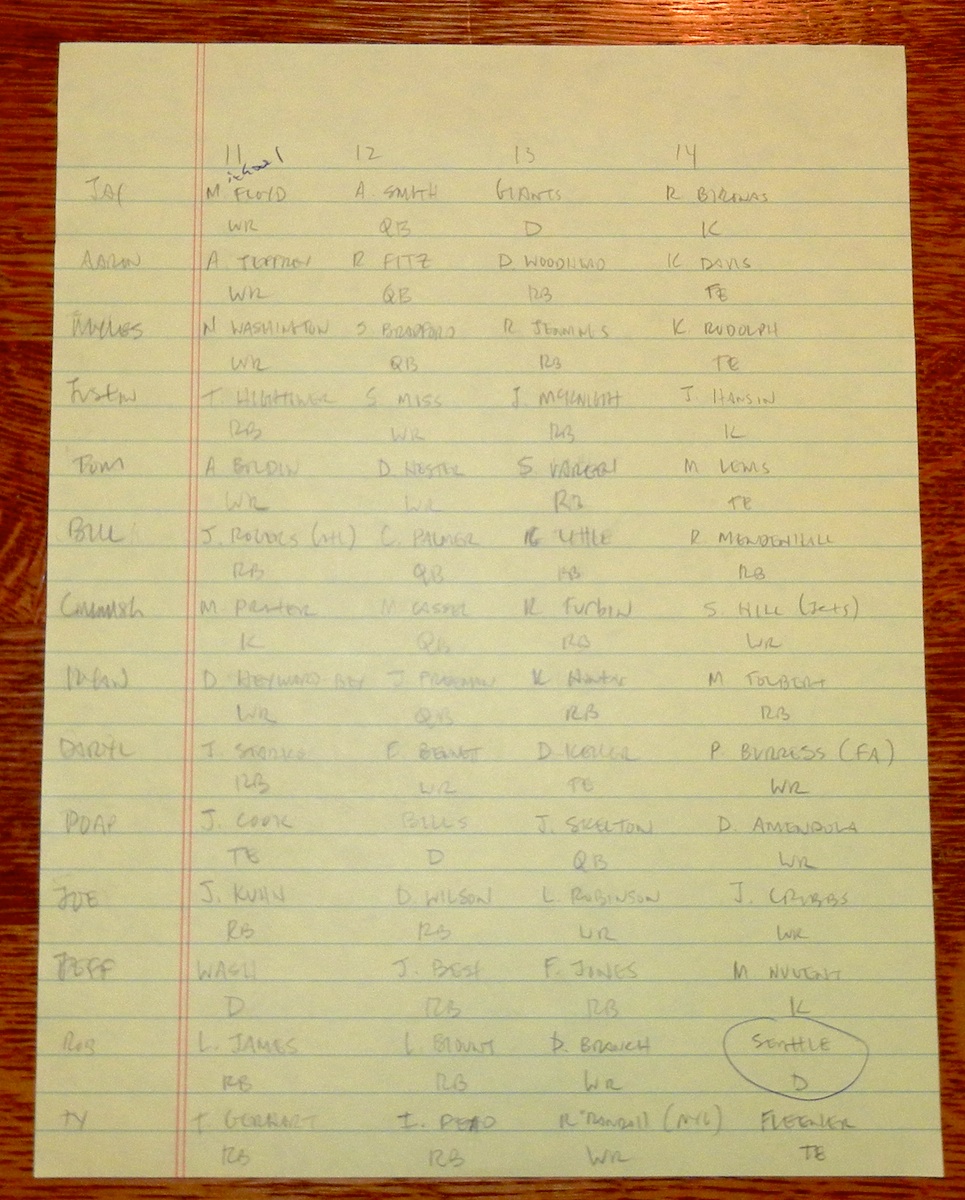 11 12 13 14
ichael
JAY M. FLOYD A. SMITH GIANTS R. BIRONAS
WR QB D K
AARON A. JEFFREY R FITZ D WOODHEAD K DAVIS
WR QB RB TE
MYLES N WASHINGTON S. BRADFORD R. JENNINGS K. RUDOLPH
WR QB RB TE
JUSTIN T HIGHTOWER S MOSS J. MCKNIGHT J. HANSIN
RB WR RB K
TOM A BOLDIN D. HESTER S VAREEN M LEWIS
WR WR RB TE
BILL J. RODGERS (ATL) C. PALMER LITTLE R. MENDENHALL
RB QB RB RB
M. PRATER M CASSEL R TURBIN S. HILL (JETS)
K QB RB WR
RYAN D HEYWARD-BEY J FREEMAN K HUNTER M TOLBERT
WR QB RB RB
DARYL J. STARKS E. BENNET D KELLER P. BURRESS (FA)
RB WR TE WR
J. COOK BILLS J. SKELTON D. AMENDOLA
TE D QB WR
JOE J. KUHN D. WILSON L. ROBINSON J. CRIBBS
RB RB WR WR
JEFF WASH J. BEST F. JONES M NUGENT
D RB RB K
ROB L. JAMES L. BLOUNT D. BRANCH SEATTLE
RB RB WR D
TY T. GERHART I. PEAD R RANDALL FLEENER
RB RB WR TE